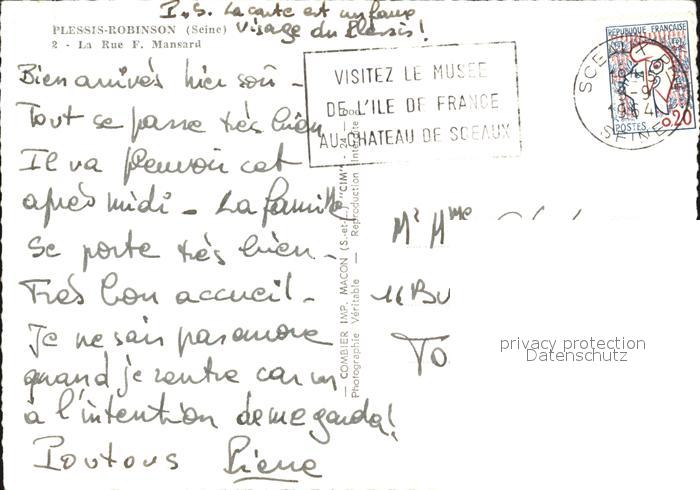 P.S. La carte est un faux
visage du Plessis!
PLESSIS-ROBINSON (Seine)
2 - La Rue F. Mansard
Bien arrivés hier soir -
Tout se passe très bien
Il va pleuvoir cet
après midi - La famille
se porte très bien -
Très bon accueil -
Je ne sais pas encore
quand je rentre car on
a l'intention de me garder!
Poutous Pierre
VISITEZ LE MUSEE
DE L'ILE DE FRANCE
AU CHATEAU DE SCEAUX
SCEAUX
1964
SEINE
REPUBLIQUE FRANÇAISE
POSTES 0,20
COMBIER IMP. MACON (S.-et-L.) "CIM"
Photographie Véritable - Reproduction Interdite
Mr Mme
To
privacy protection
Datenschutz